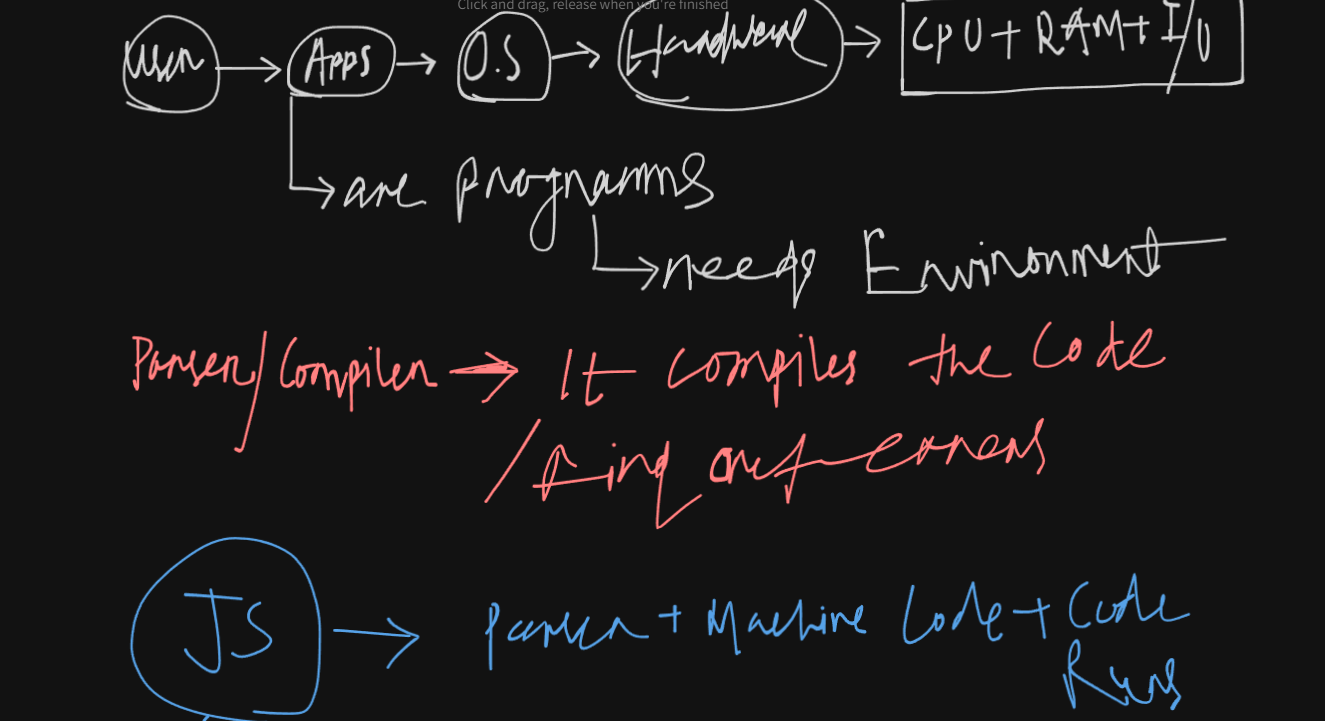 Click and drag, release when you're finished
User → Apps → O.S → Hardware → CPU + RAM + I/O
→ are programs
→ needs Environment
Parser/Compiler → It compiles the Code
/ find out errors
JS → Parser + Machine Code + Code
Runs